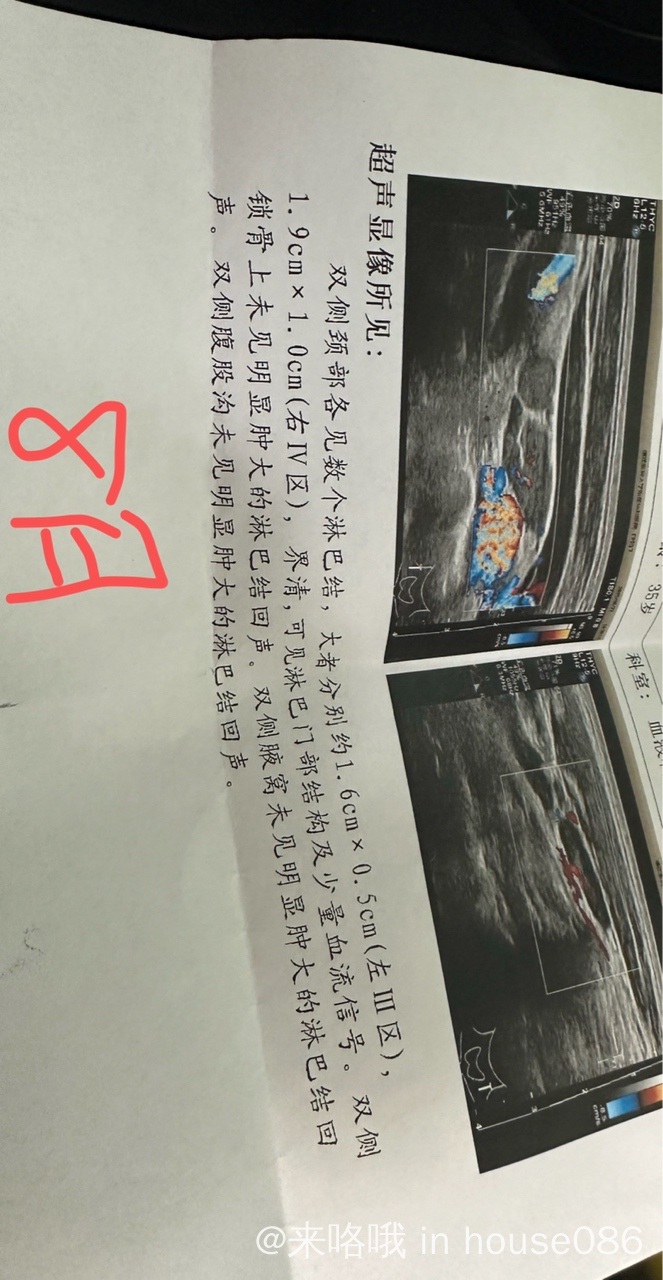 35岁
科室：血液
超声显像所见：
双侧颈部各见数个淋巴结，大者分别约1.6cm×0.5cm(左Ⅲ区)，
1.9cm×1.0cm(右Ⅳ区)，界清,可见淋巴门部结构及少量血流信号。双侧
锁骨上未见明显肿大的淋巴结回声。双侧腋窝未见明显肿大的淋巴结回
声。双侧腹股沟未见明显肿大的淋巴结回声。
8月
@来咯哦 in house086